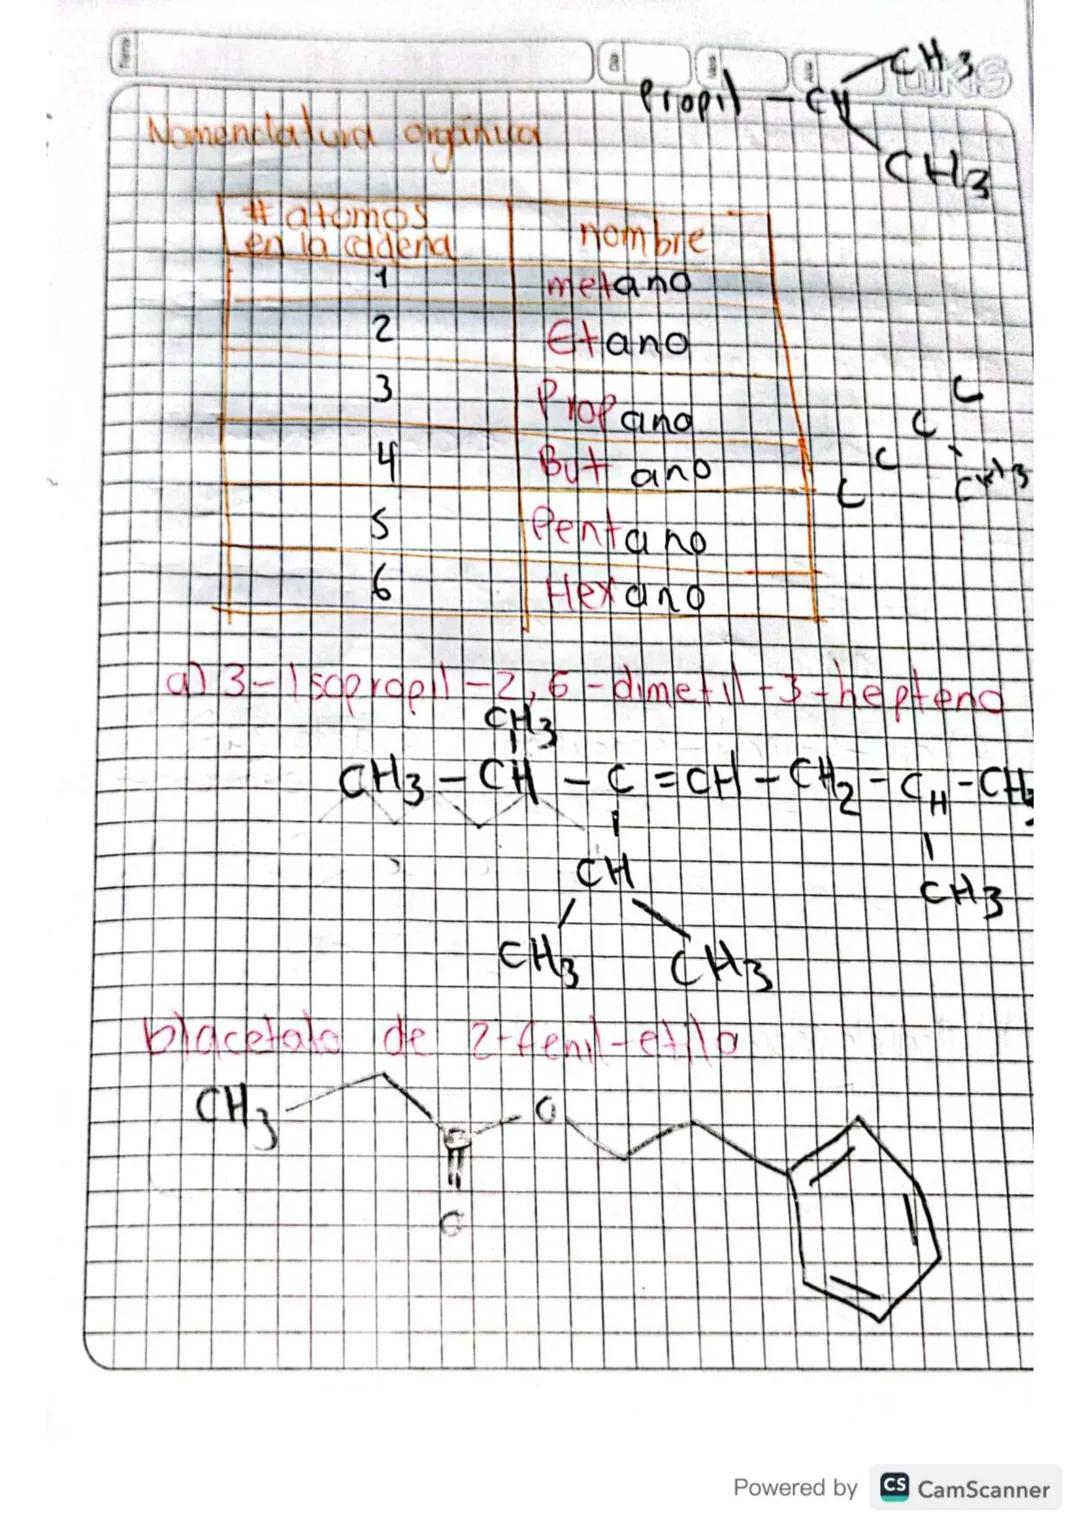 CH3
Propil - CH
CH3
Nomenclatura orgánica
# atomos
en la cadena
nombre
1 metano
2 Etano
3 Propano
4 Butano
5 Pentano
6 Hexano
C
C
C
C CH3
a) 3-Isopropil-2,6-dimetil-3-hepteno
CH3
CH3 - CH - C = CH - CH2 - CH - CH3
CH
CH3
CH3 CH3
b) acetato de 2-fenil-etilo
CH3
O
C
O
Powered by CS CamScanner